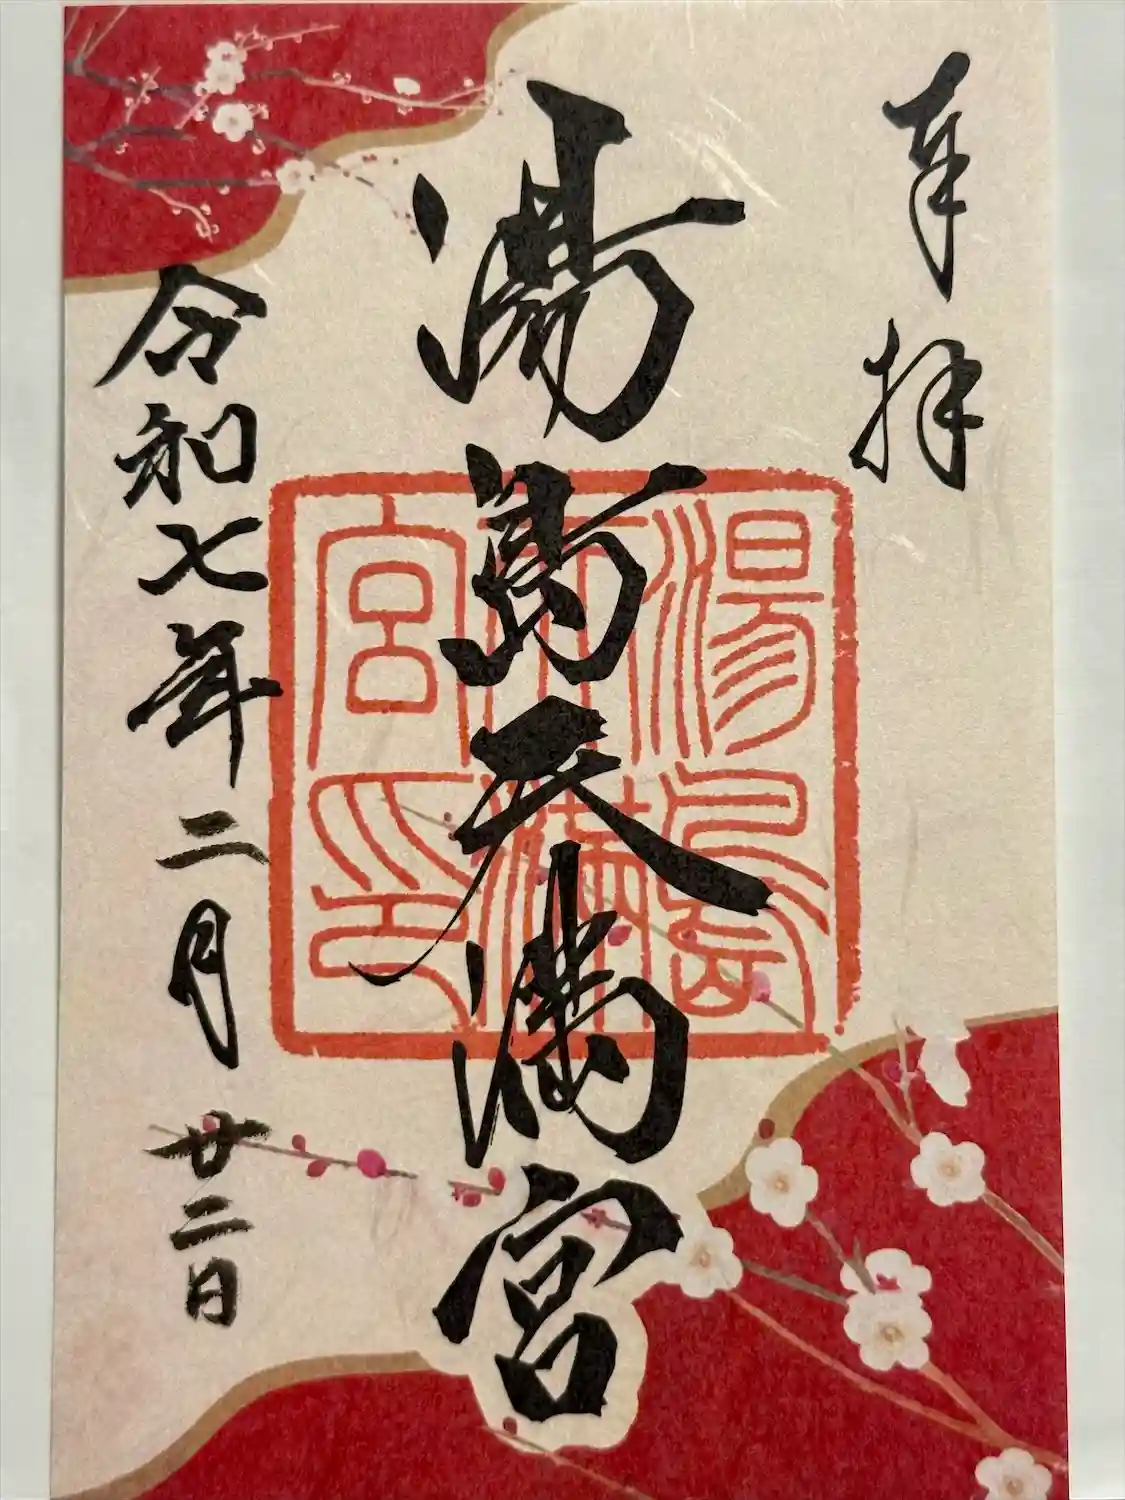 奉拝
湯島天満宮
湯島天満宮印
令和七年二月廿二日